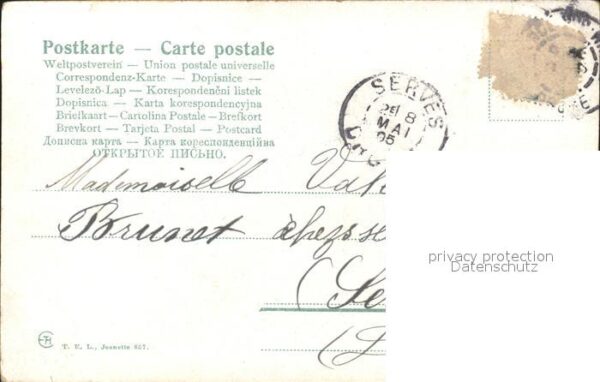 Postkarte — Carte postale
Weltpostverein — Union postale universelle
Correspondenz-Karte — Dopisnice —
Levelező-Lap — Korespondenční listek
Dopisnica — Karta korespondencyjna
Briefkaart — Cartolina Postale — Brefkort
Brevkort — Tarjeta Postal — Postcard
Дописна карта — Карта кореспонденційна
ОТКРЫТОЕ ПИСЬМО.
SERVES
8
MAI
05
Mademoiselle
Brunet
privacy protection
Datenschutz
T. E. L., Jeanette 857.